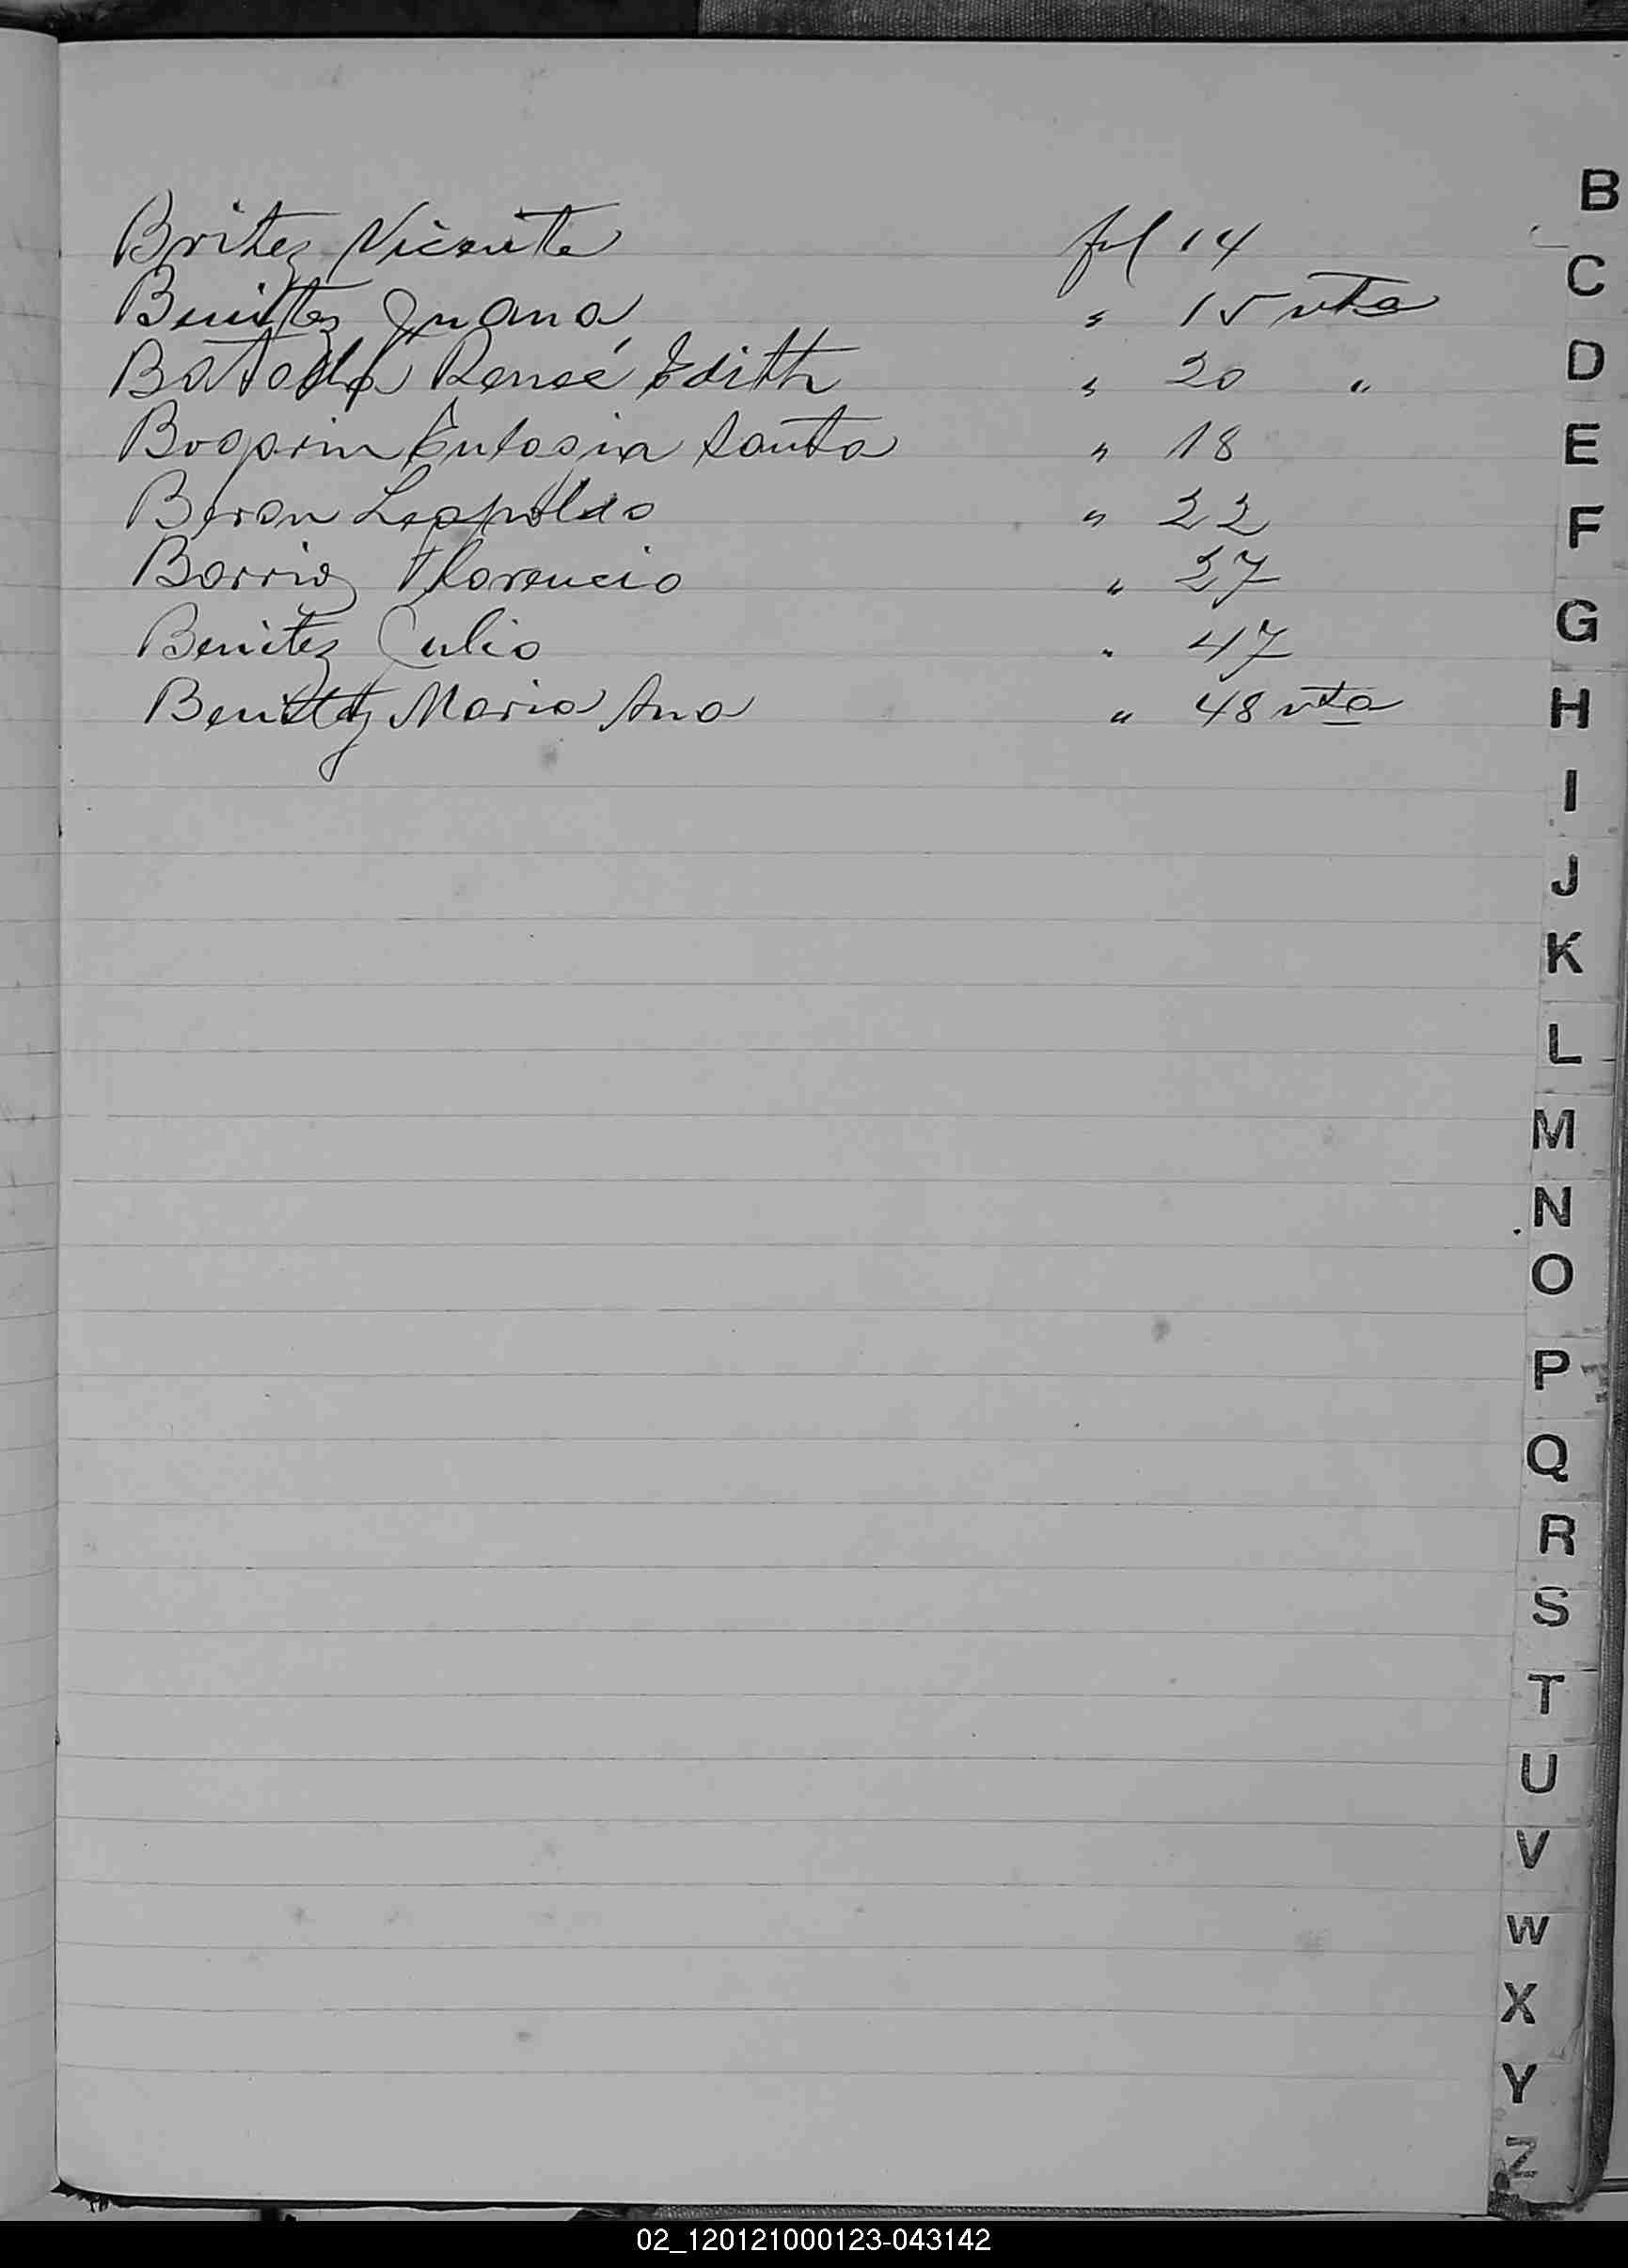 Britez Vicente fol 14
Benitez Juana " 15 vta
Renée Edith " 20 "
Bogarin Eulogia Santa " 18
Beron Leopoldo " 22
Barrios Florencio " 27
Benitez Julio " 47
Benitez Maria Ana " 48 vta
B
C
D
E
F
G
H
I
J
K
L
M
N
O
P
Q
R
S
T
U
V
W
X
Y
Z
02_120121000123-043142